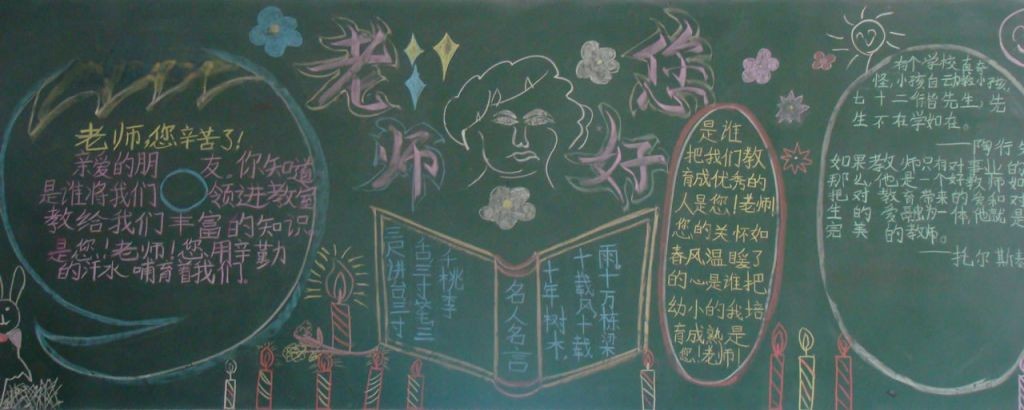 老 您
师 好
老师,您辛苦了!
亲爱的朋 友,你知道
是谁将我们 领进教室
教给我们丰富的知识
是您!老师!您用辛勤
的汗水哺育着我们。
三尺讲台三寸
舌三寸笔三
千桃李
名人名言
十年树木,
十载风十载
雨,十万栋梁
是谁
把我们教
育成优秀的
人是您!老师!
您的关怀如
春风温暖了
的心是谁把,
幼小的我培
育成熟是
您!老师!
有个学校真奇
怪小孩自
七十二 皆先生,先
生不在学如在。
——陶行
如果教师只有对事业的
那么他是一个好教师如
把 对教育
生的 融为一体他就是
完美的教师。
——托尔斯